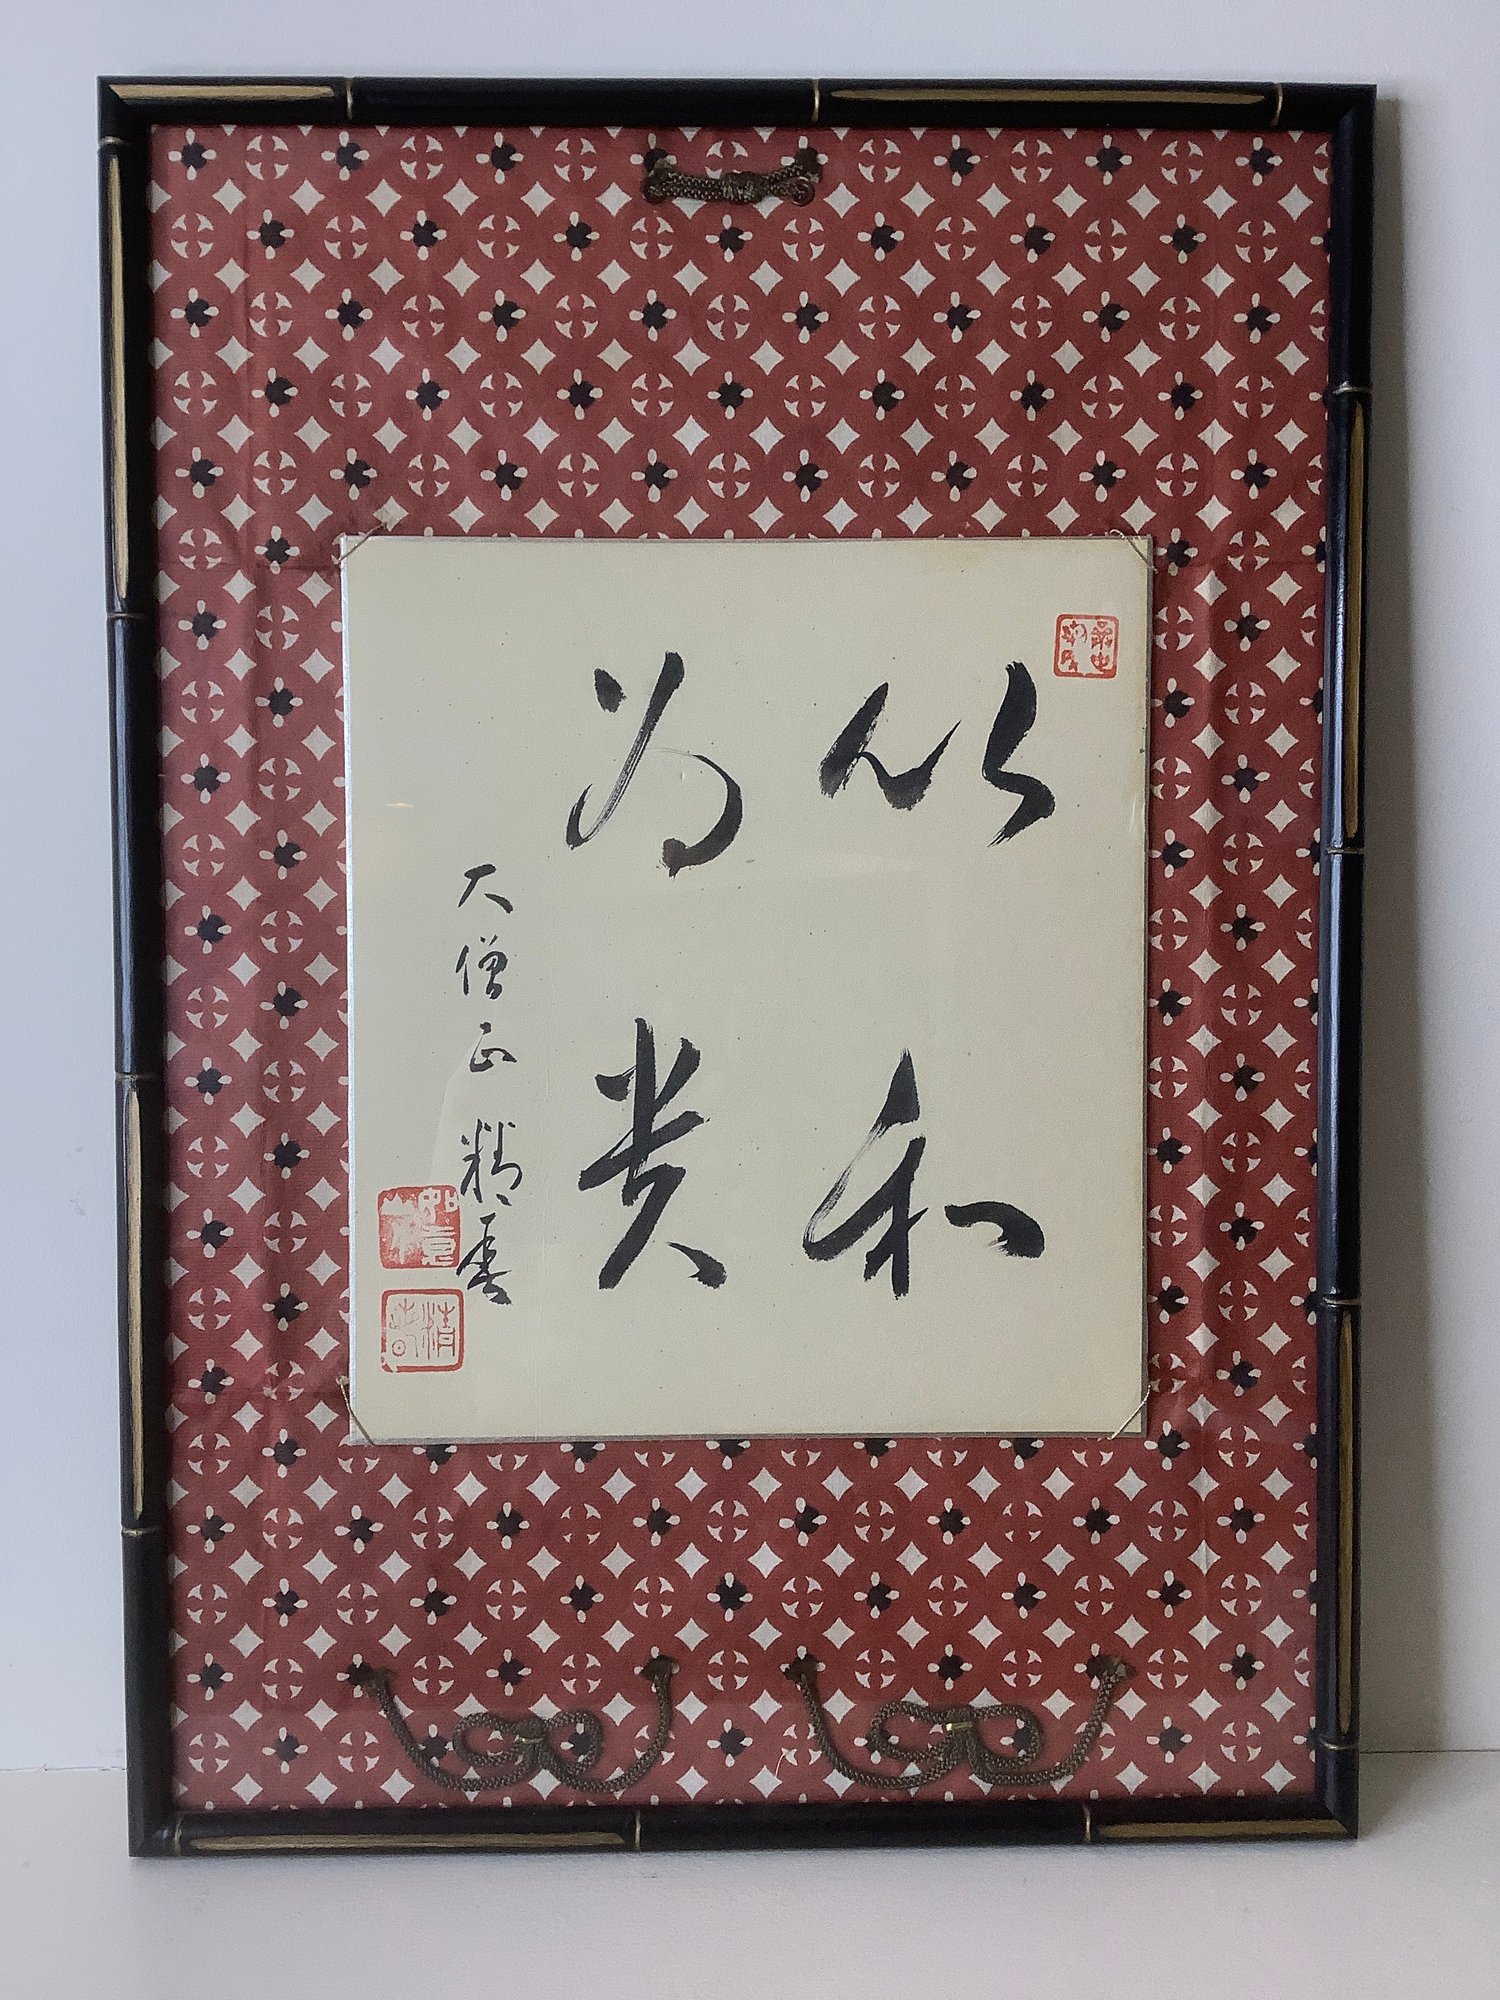 以和
為貴
大僧正 精